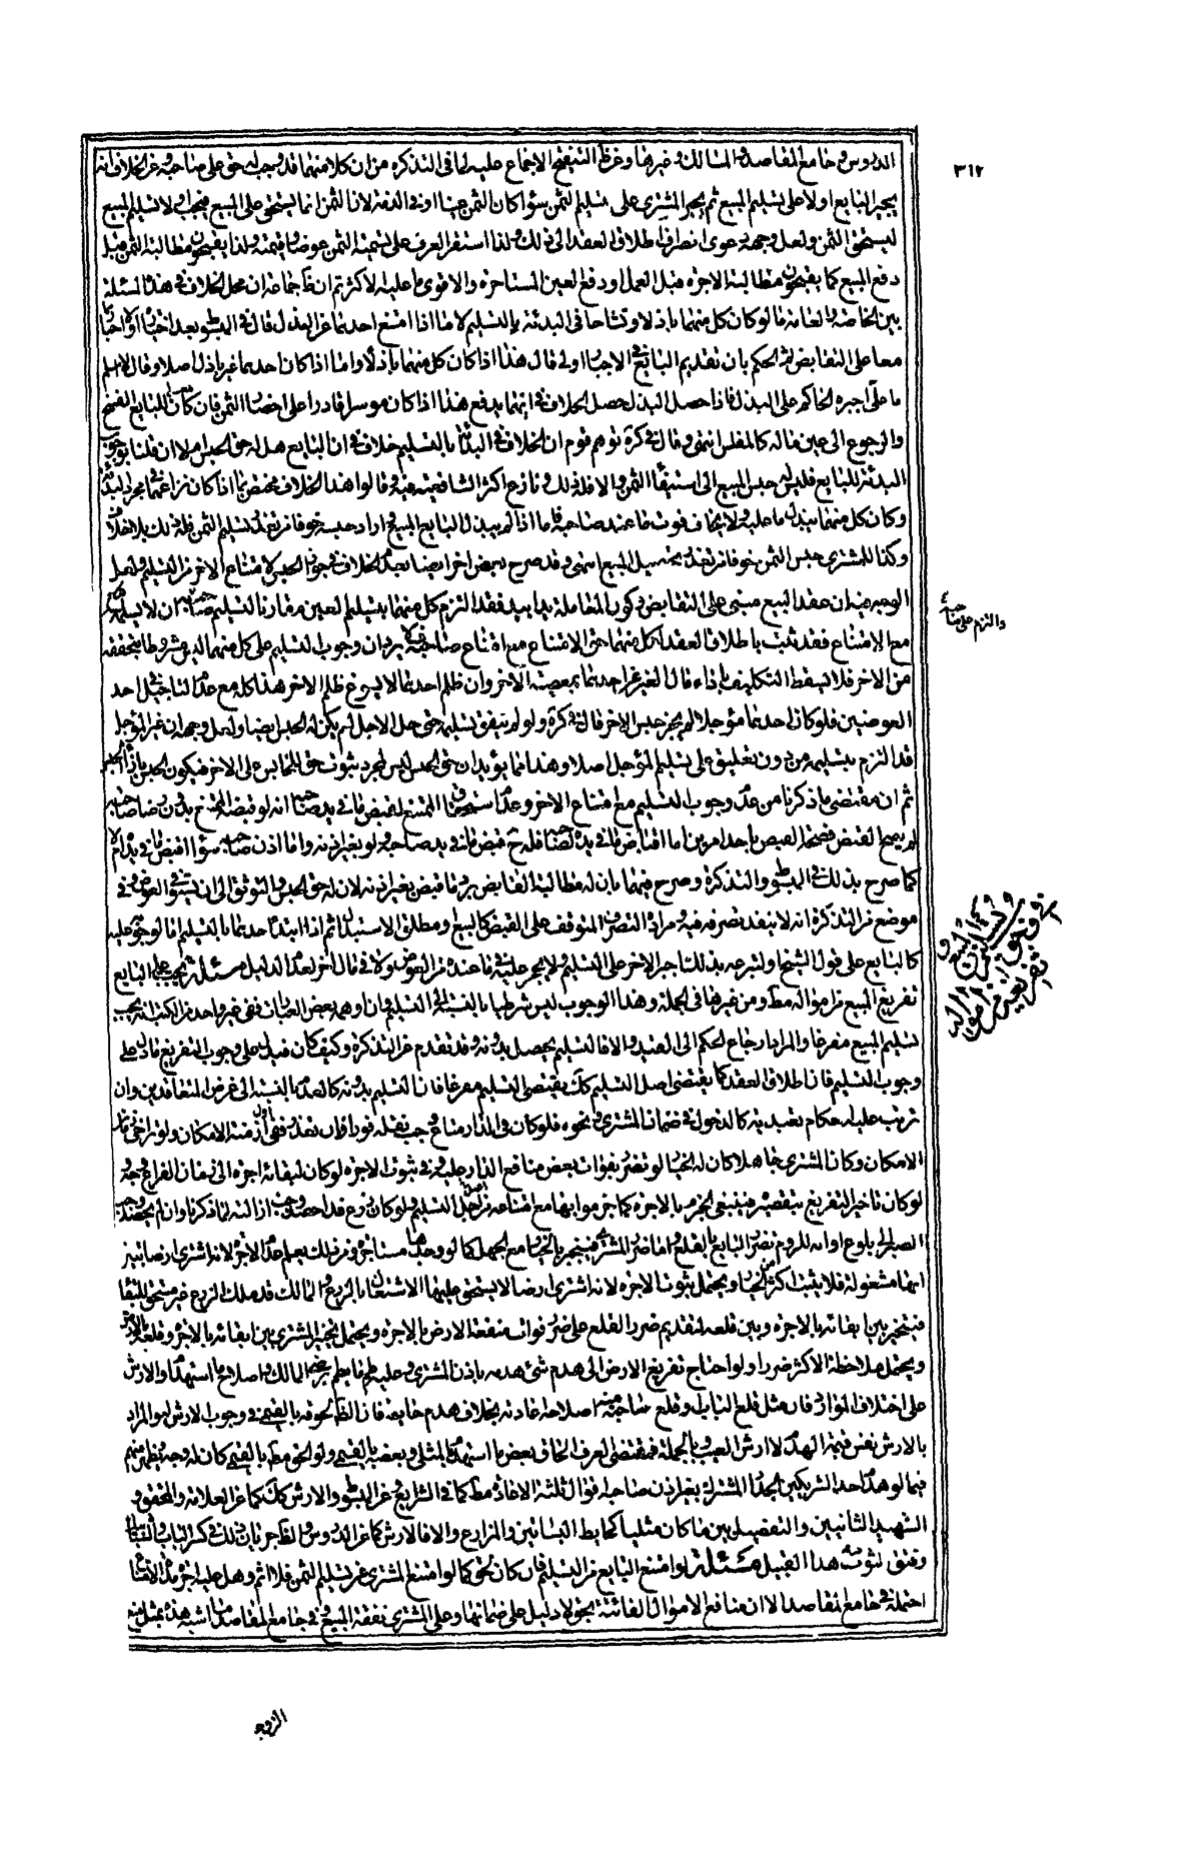 ٣١٢
الدروس وجامع المقاصد والمسالك وغيرها وعن ظاهر التنقيح الاجماع عليه لما في التذكرة من ان كلا منهما قد وجب له حق على صاحبه وعن الخلاف انه
يجبر البايع اولا على تسليم المبيع ثم يجبر المشتري على تسليم الثمن سواء كان الثمن عينا او في الذمة لان الثمن انما يستحق على المبيع فيجب اولا تسليم المبيع
ليستحق الثمن ولعل وجهه دعوى انصراف اطلاق العقد الى ذلك ولذا استقر العرف على تسمية الثمن عوضا وقيمة ولذا يقبحون مطالبة الثمن قبل
دفع المبيع كما يقبحون مطالبة الاجرة قبل العمل او دفع العين المستاجرة والاقوى ما عليه الاكثر ثم ان ظاهر جماعة ان محل الخلاف في هذه المسئلة
بين الخاصة والعامة ما لو كان كل منهما باذلا وتشاحا في البدئة بالتسليم لا ما اذا امتنع احدهما عن البذل قال في المبسوط بعد اختياره اجبارهما
معا على التقابض ثم الحكم بان تقديم البايع في الاجبار اولى قال هذا اذا كان كل منهما باذلا واما اذا كان احدهما غير باذل اصلا وقال لا اسلم
ما علي اجبره الحاكم على البذل فاذا حصل البذل حصل الخلاف في ايهما يدفع هذا اذا كان موسرا قادرا على احضار الثمن فان كان معسرا كان للبايع الفسخ
والرجوع الى عين ماله كالمفلس انتهى وقال في كره توهم قوم ان الخلاف في البدئة بالتسليم خلاف في ان البايع هل له حق الحبس ام لا ان قلنا بوجوب
البدئة للبايع فليس له حبس المبيع الى استيفاء الثمن والا فله ذلك ونازع اكثر الشافعية فيه وقالوا هذا الخلاف مختص بما اذا كان نزاعهما في مجرد البدئة
وكان كل منهما يبذل ما عليه ولا يخاف فوت ما عند صاحبه فاما اذا لم يبذل البايع المبيع واراد حبسه خوفا من تعذر تسليم الثمن فله ذلك بلا خلاف
وكذا للمشتري حبس الثمن خوفا من تعذر تحصيل المبيع انتهى وقد صرح بعض اخر ايضا بعدم الخلاف في جواز الحبس لامتناع الاخر من التسليم ولعل
الوجه فيه ان عقد البيع مبنى على التقابض وكون المعاملة يدا بيد فقد التزم كل منهما بتسليم العين مقارنا لتسليم صاحبه ان لا يسلمه
مع الامتناع فقد ثبت باطلاق العقد لكل منهما حق الامتناع مع امتناع صاحبه فلا يرد ان وجوب التسليم على كل منهما ليس مشروطا بتحققه
من الاخر فلا يسقط التكليف باداء مال الغير عن احدهما بمعصية الاخر وان ظلم احدهما لا يسوغ ظلم الاخر هذا كله مع عدم التاجيل في احد
العوضين فلو كان احدهما مؤجلا لم يجز حبس الاخر قال في كره ولو لم يتفق تسليمه حتى حل الاجل لم يكن له الحبس ايضا ولعل وجهه ان غير المؤجل
قد التزم بتسليمه من دون تعليق على تسليم المؤجل اصلا وهذا مما يؤيد ان حق الحبس ليس لمجرد ثبوت حق للحابس على الاخر فيكون الحبس بازاء الحبس
ثم ان مقتضى ما ذكرنا من عدم وجوب التسليم مع امتناع الاخر وعدم استحقاق الممتنع لقبض ما في يد صاحبه انه لو قبضه الممتنع بدون رضا صاحبه
لم يصح القبض فصحة القبض باحد امرين اما اقباض ما في يده لصاحبه فله ح قبض ما في يد صاحبه ولو بغير اذنه واما اذن صاحبه سواء اقبض ما في يده ام لا
كما صرح بذلك في المبسوط والتذكرة وصرح فيهما بان له مطالبة القابض برد ما قبض بغير اذنه لان له حق الحبس والتوثق الى ان يستوفي العوض وفي
موضع من التذكرة انه لا ينفذ تصرفه فيه ومراده التصرف المتوقف على القبض كالبيع ومطلق الاستبدال ثم اذا ابتدأ احدهما بالتسليم اما لوجوبه عليه
كالبايع على قول الشيخ او لتبرعه بذلك اجبر الاخر على التسليم ولا يحجر عليه في ما عنده من العوض ولا في مال اخر لعدم الدليل مسئلة يجب على البايع
تفريغ المبيع من امواله مط ومن غيرها في الجملة وهذا الوجوب ليس شرطيا بالنسبة الى التسليم وان اوهمه بعض العبارات ففي غير واحد من الكتب انه يجب
تسليم المبيع مفرغا والمراد ارجاع الحكم الى القيد والا فالتسليم يحصل بدونه وقد تقدم عن التذكرة وكيف كان فيدل على وجوب التفريغ ما دل على
وجوب التسليم فان اطلاق العقد كما يقتضى اصل التسليم كك يقتضى التسليم مفرغا فان التسليم بدونه كالعدم بالنسبة الى غرض المتعاقدين وان
ترتب عليه احكام تعبدية كالدخول في ضمان المشتري ونحوه فلو كان في الدار متاع وجب نقله فورا فان تعذر ففي اول ازمنة الامكان ولو تراخى زمان
الامكان وكان المشتري جاهلا كان له الخيار لو تضرر بفوات بعض منافع الدار عليه وفي ثبوت الاجرة لو كان لبقائه اجرة الى زمان الفراغ وجه ولو
كان تاخير التفريغ بتقصيره فينبغي الجزم بالاجرة كما جزموا بها مع امتناعه من اصل التسليم ولو كان زرع قد احصد وجب ازالته لما ذكرنا وان لم يحصد وجب
الصبر الى بلوغ اوانه للزوم تضرر البايع بالقلع واما ضرر المشتري فينجبر بالخيار مع الجهل كما لو وجدها مستاجرة ومن ذلك يعلم عدم الاجرة لانه اشترى ارضا تبين
انها مشغولة فلا يثبت اكثر من الخيار ويحتمل ثبوت الاجرة لانه اشترى ارضا لا يستحق عليها الاشتغال بالزرع والمالك قد ملك الزرع غير مستحق للبقاء
فيتخير بين ابقائه بالاجرة وبين قلعه لتقديم ضرر القلع على ضرر فوات منفعة الارض بالاجرة ويحتمل تخيير المشتري بين ابقائه بالاجرة وقلعه بالارش
ويحتمل ملاحظة الاكثر ضررا ولو احتاج تفريغ الارض الى هدم شئ هدمه باذن المشتري وعليه طم ما يطم برضى المالك واصلاح ما استهدم او الارش
على اختلاف الموارد فان مثل قلع الباب او قلع ساجة منه اصلاحه اعادته بخلاف هدم حايط فان الظ لحوقه بالقيمي في وجوب الارش له والمراد
بالارش نفس قيمة الهدم لا ارش العيب وبالجملة فمقتضى العرف الحاق بعض ما استهدم بالمثلي وبعضه بالقيمي ولو الحق مط بالقيمي كان له وجه ويظهر منهم
فيما لو هدم احد الشريكين الجدار المشترك بغير اذن صاحبه اقوال ثلثة الاعادة مط كما في الشرايع وعن المبسوط والارش كك كما عن العلامة والمحقق و
الشهيد الثانيين والتفصيل بين ما كان مثليا كحايط البساتين والمزارع والا فالارش كما عن الدروس والظ جريان ذلك في كسر الباب والشبابيك
وفتق الثوب من هذا القبيل مسئلة لو امتنع البايع من التسليم فان كان لحق كما لو امتنع المشتري عن تسليم الثمن فلا اثم وهل عليه اجرة مدة الامتناع
احتمله في جامع المقاصد الا ان منافع الاموال الفائتة بحق لا دليل على ضمانها وعلى المشتري نفقة المبيع وفي جامع المقاصد ما اشبه هذه بمثل منع
والتزم على صاحبه
الزوجة